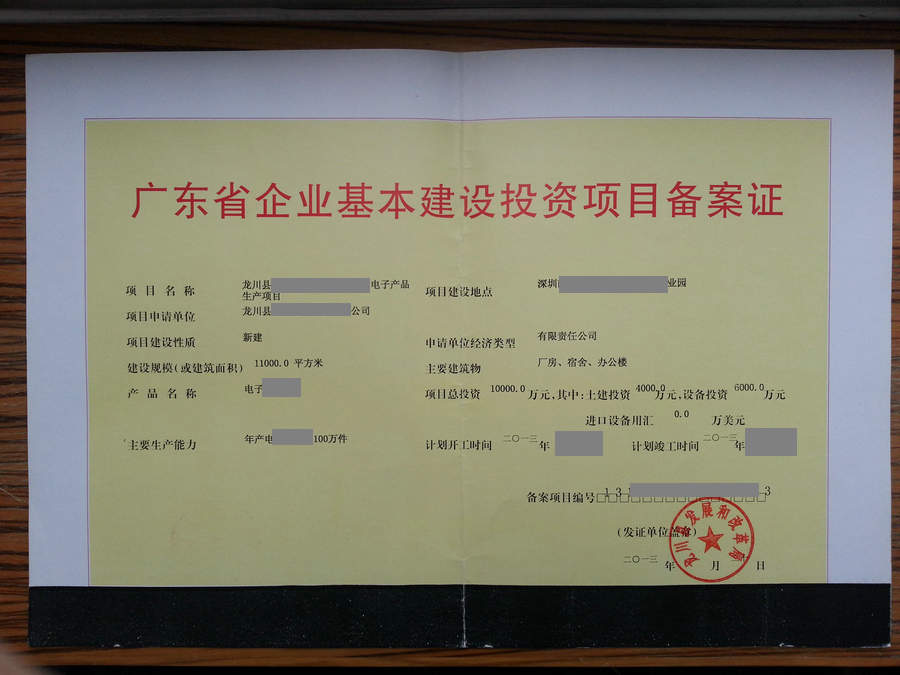 广东省企业基本建设投资项目备案证
项目名称 龙川县 电子产品
生产项目
项目建设地点 深圳 业园
项目申请单位 龙川县 公司
项目建设性质 新建
申请单位经济类型 有限责任公司
建设规模(或建筑面积) 11000.0 平方米
主要建筑物 厂房、宿舍、办公楼
产品名称 电子
项目总投资 10000.0 万元,其中:土建投资 4000.0 万元,设备投资 6000.0 万元
进口设备用汇 0.0 万美元
主要生产能力 年产电 100万件
计划开工时间 二〇一三 年
计划竣工时间 二〇一三 年
备案项目编号 13 3
(发证单位盖章)
龙川县发展和改革局
二〇一三 年 月 日